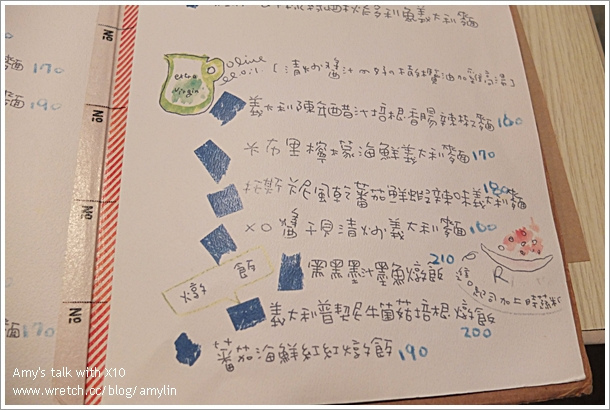 義大利麵
olive oil
extra virgin
(清炒醬汁
義大利陳年醋汁培根香腸辣椒麵 160
卡布里檸檬海鮮義大利麵 170
托斯卡尼風乾蕃茄鮮蝦辣味義大利麵 180
XO醬干貝清炒義大利麵 160
燉飯
黑黑墨汁墨魚燉飯 210
義大利普契尼牛菌菇培根燉飯 200
蕃茄海鮮紅紅燉飯 190
麵 170
190
170
No
No
No
No
R
Amy's talk with X10
www.wretch.cc/blog/amylin